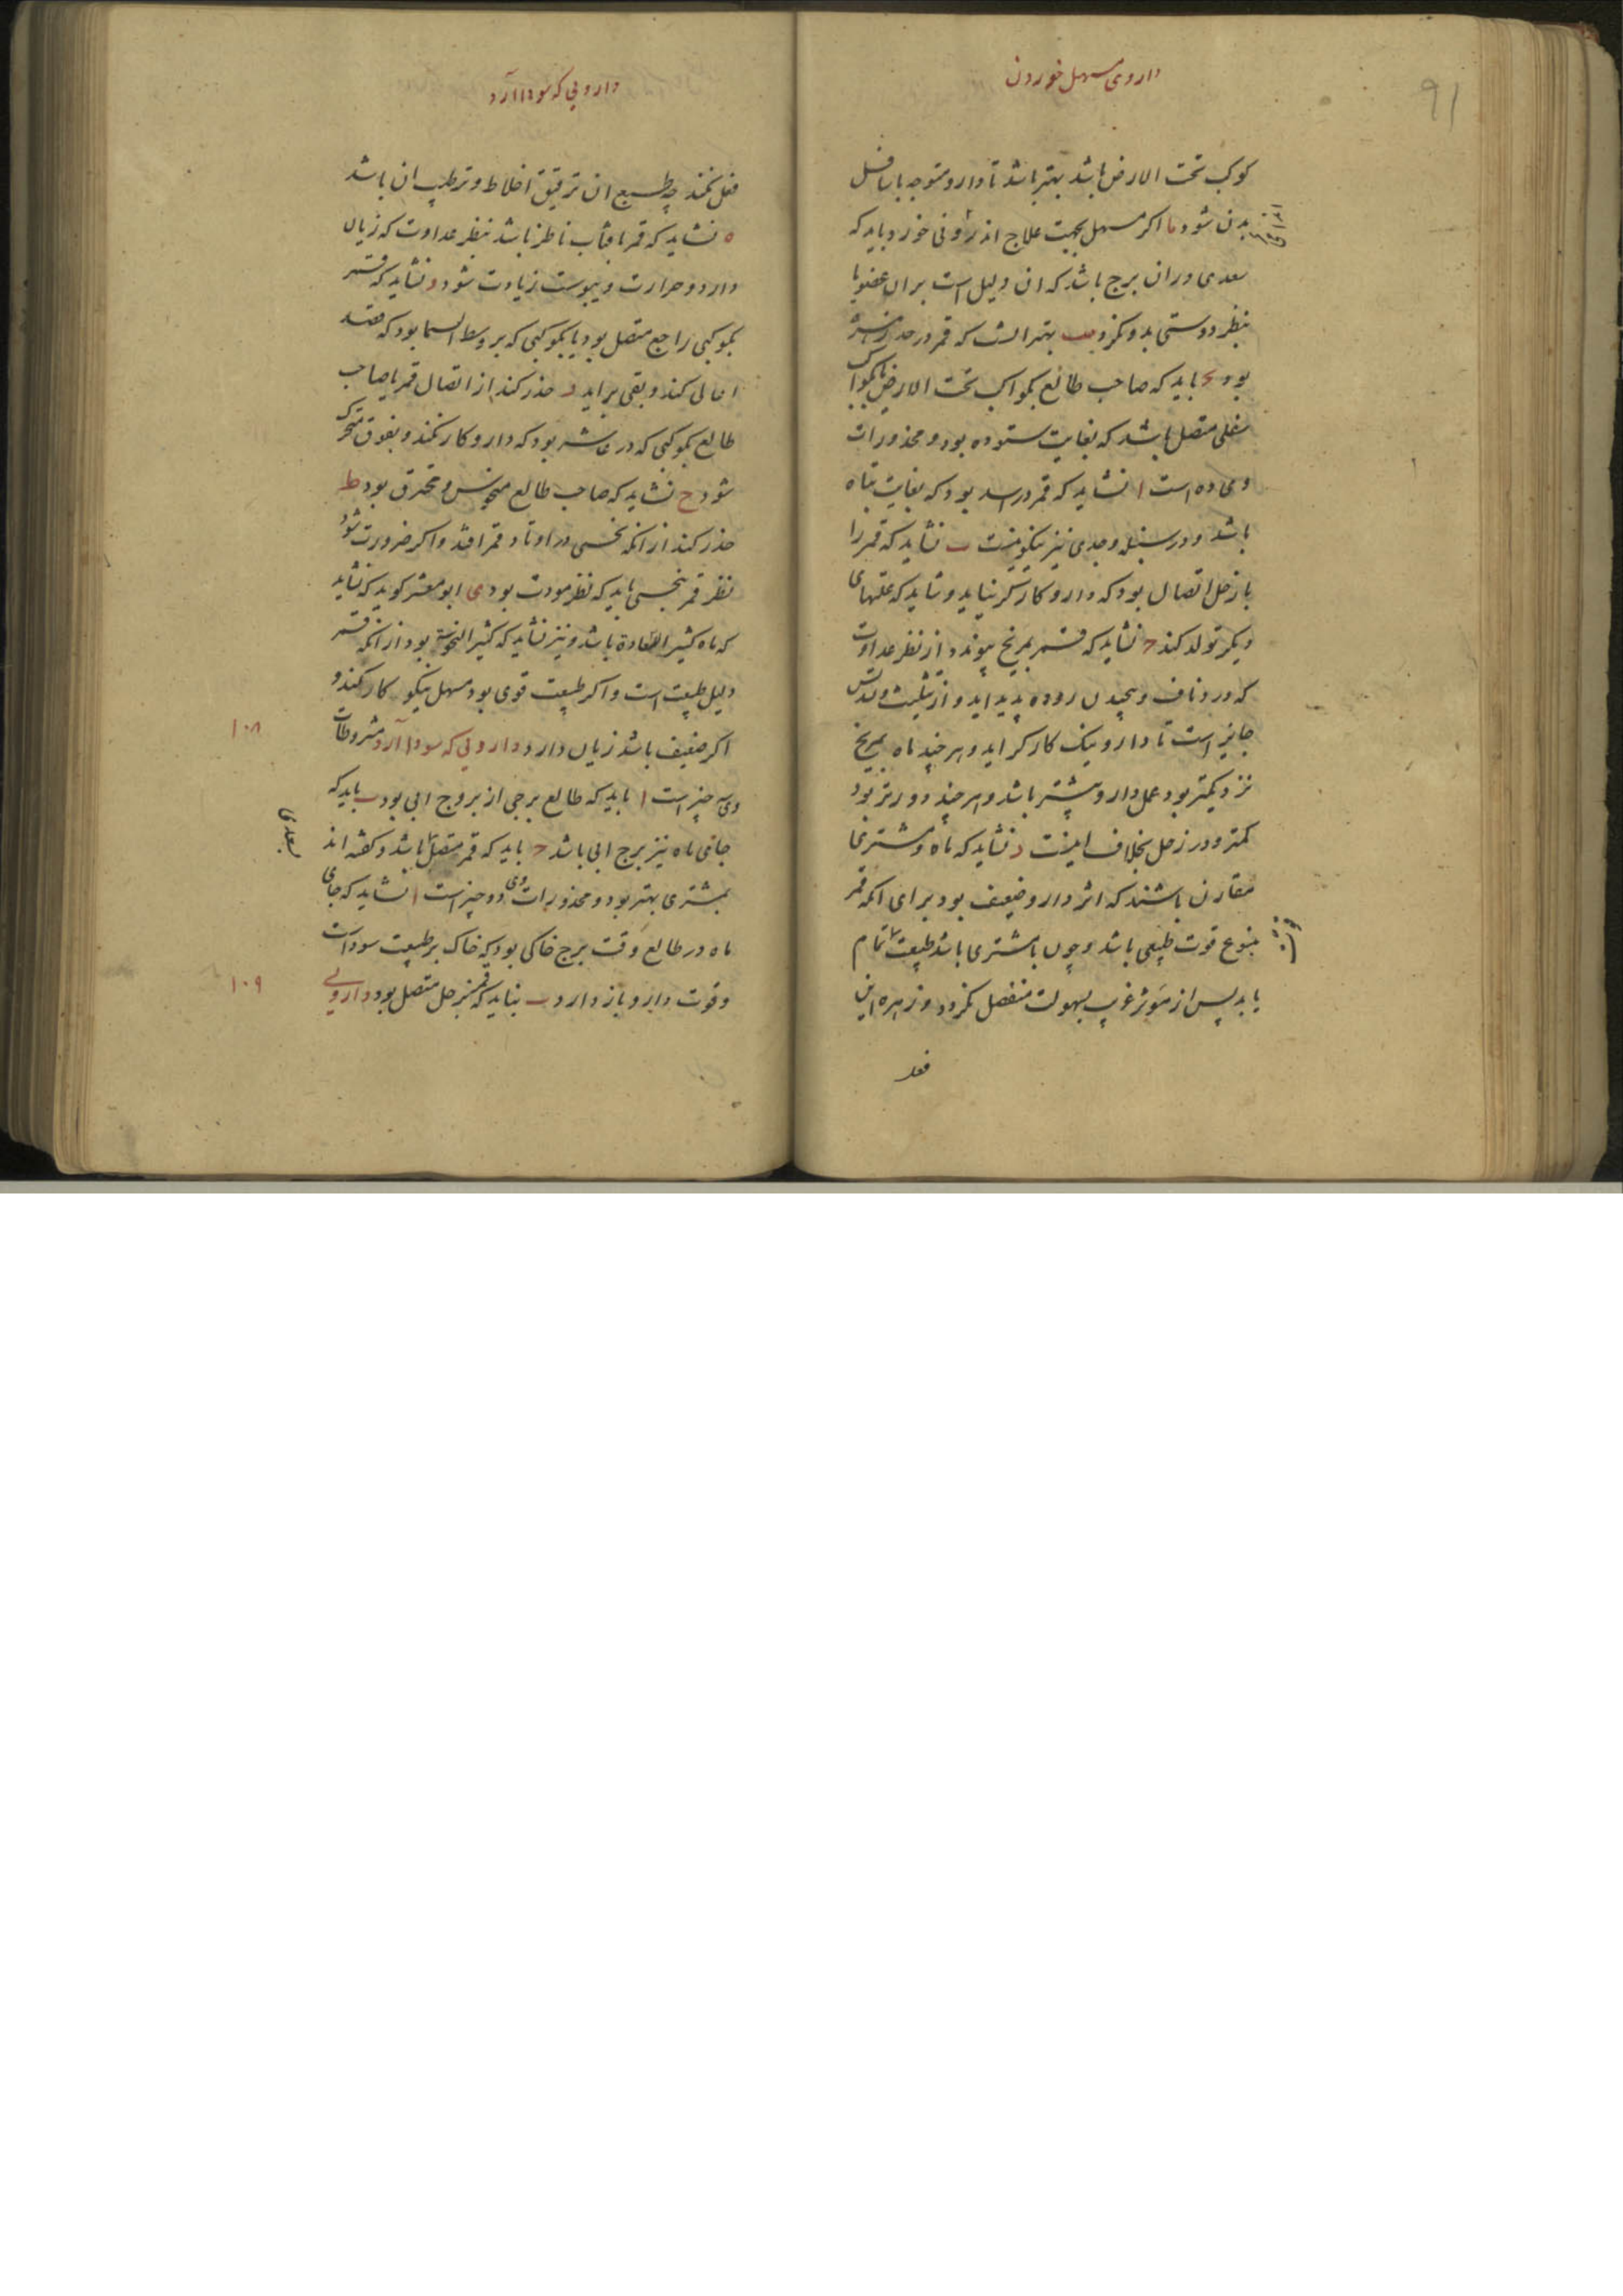 91
داروی مسهل خوردن
کوکب تحت الارض باشد بهتر باشد تا دارو متوجه باسافل
بدن شود یا اکر مسهل بجهت علاج اندرونی خورد باید که
سعدی در ان برج باشد که ان دلیل است بران عضو یا
بنظر دوستی بدو نکرد یب بهتر انست که قمر در حد زهره
بود یج باید که صاحب طالع بکواکب تحت الارض یا بکواکب
سفلی متصل باشد که بغایت ستوده بود و محذورات
وی ده است ا نشاید که قمر در اسد بود که بغایت تباه
باشد و در سنبله و جدی نیز نیکو نیست ب نشاید که قمر را
با زحل اتصال بود که دارو کارکر نیاید و شاید که علتهای
دیکر تولد کند ج نشاید که قمر بمریخ پیوندد از نظر عداوت
که درد ناف و پیچیدن روده پدید اید و از تثلیث و تسدیس
جایز است تا دارو نیک کارکر اید و هر چند ماه بمریخ
نزدیکتر بود عمل دارو بیشتر باشد و هر چند دورتر بود
کمتر و در زحل بخلاف اینست د نشاید که ماه و مشتری
مقارن باشند که اثر دارو ضعیف بود برای انکه قمر
ینبوع قوت طبیعی باشد و چون با مشتری باشد طبیعت تمام
یابد پس از موثر غریب بسهولت منفعل نکردد و زهره این
فعل
دارویی که سودا آرد
فعل نکند چه طبع ان ترقیق اخلاط و ترطیب ان باشد
ه نشاید که قمر بافتاب ناظر باشد بنظر عداوت که زیان
دارد و حرارت و یبوست زیادت شود و نشاید که قمر
بکوکبی راجع متصل بود یا بکوکبی که بر وسط السما بود که قصد
اعالی کند و بقی براید ز حذر کند از اتصال قمر یا صاحب
طالع بکوکبی که در عاشر بود که دارو کار نکند و بفوق متحرک
شود ح نشاید که صاحب طالع منحوس و محترق بود ط
حذر کند از انکه نحسی در اوتاد قمر افتد و اکر ضرورت شود
نظر قمر بنحسی باید که نظر مودت بود ی ابو معشر کوید که نشاید
که ماه کثیر السعادة باشد و نیز نشاید که کثیر النحوسة بود از انکه قمر
دلیل طبیعت است و اکر طبیعت قوی بود مسهل نیکو کار نکند و
اکر ضعیف باشد زیان دارد دارویی که سودا آرد مشروطات
۱۰۸
وی سه چیز است ا باید که طالع برجی از بروج ابی بود ب باید که
جای ماه نیز برج ابی باشد ج باید که قمر متصل باشد و کفته اند
بسعدی
بمشتری بهتر بود و محذورات وی دو چیز است ا نشاید که جای
ماه در طالع وقت برج خاکی بود که خاک بر طبیعت سوداست
و قوت دارو باز دارد ب نباید که قمر بزحل متصل بود دارویی
۱۰۹